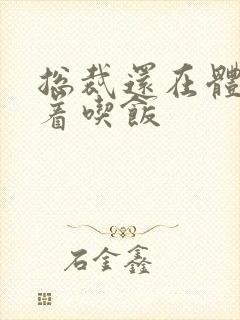 总裁還在體
着喫飯
石金鑫